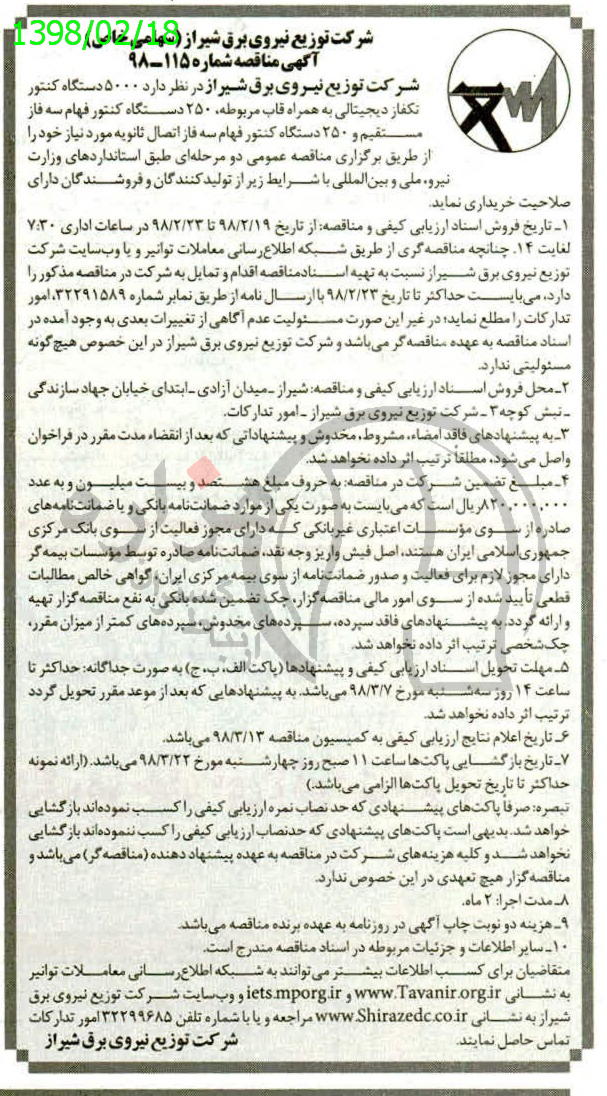 1398/02/18
شرکت توزیع نیروی برق شیراز (سهامی خاص)
آگهی مناقصه شماره ۱۱۵-۹۸
شرکت توزیع نیروی برق شیراز در نظر دارد ۵۰۰۰ دستگاه کنتور
تکفاز دیجیتالی به همراه قاب مربوطه، ۲۵۰ دستگاه کنتور فهام سه فاز
مستقیم و ۲۵۰ دستگاه کنتور فهام سه فاز اتصال ثانویه مورد نیاز خود را
از طریق برگزاری مناقصه عمومی دو مرحله‌ای طبق استانداردهای وزارت
نیرو، ملی و بین‌المللی با شرایط زیر از تولیدکنندگان و فروشندگان دارای
صلاحیت خریداری نماید.
۱ـ تاریخ فروش اسناد ارزیابی کیفی و مناقصه: از تاریخ ۹۸/۲/۱۹ تا ۹۸/۲/۲۳ در ساعات اداری ۷:۳۰
لغایت ۱۴. چنانچه مناقصه‌گری از طریق شبکه اطلاع‌رسانی معاملات توانیر و یا وب‌سایت شرکت
توزیع نیروی برق شیراز نسبت به تهیه اسناد مناقصه اقدام و تمایل به شرکت در مناقصه مذکور را
دارد، می‌بایست حداکثر تا تاریخ ۹۸/۲/۲۳ با ارسال نامه از طریق نمابر شماره ۳۲۲۹۱۵۸۹، امور
تدارکات را مطلع نماید؛ در غیر این صورت مسئولیت عدم آگاهی از تغییرات بعدی به وجود آمده در
اسناد مناقصه به عهده مناقصه‌گر می‌باشد و شرکت توزیع نیروی برق شیراز در این خصوص هیچ‌گونه
مسئولیتی ندارد.
۲ـ محل فروش اسناد ارزیابی کیفی و مناقصه: شیراز ـ میدان آزادی ـ ابتدای خیابان جهاد سازندگی
ـ نبش کوچه ۳ ـ شرکت توزیع نیروی برق شیراز ـ امور تدارکات.
۳ـ به پیشنهادهای فاقد امضاء، مشروط، مخدوش و پیشنهاداتی که بعد از انقضاء مدت مقرر در فراخوان
واصل می‌شود، مطلقاً ترتیب اثر داده نخواهد شد.
۴ـ مبلغ تضمین شرکت در مناقصه: به حروف مبلغ هشتصد و بیست میلیون و به عدد
۸۲۰,۰۰۰,۰۰۰ ریال است که می‌بایست به صورت یکی از موارد ضمانت‌نامه بانکی و یا ضمانت‌نامه‌های
صادره از سوی مؤسسات اعتباری غیربانکی که دارای مجوز فعالیت از سوی بانک مرکزی
جمهوری اسلامی ایران هستند، اصل فیش واریز وجه نقد، ضمانت‌نامه صادره توسط مؤسسات بیمه‌گر
دارای مجوز لازم برای فعالیت و صدور ضمانت‌نامه از سوی بیمه مرکزی ایران، گواهی خالص مطالبات
قطعی تأیید شده از سوی امور مالی مناقصه‌گزار، چک تضمین شده بانکی به نفع مناقصه‌گزار تهیه
و ارائه گردد. به پیشنهادهای فاقد سپرده، سپرده‌های مخدوش، سپرده‌های کمتر از میزان مقرر،
چک‌شخصی ترتیب اثر داده نخواهد شد.
۵ـ مهلت تحویل اسناد ارزیابی کیفی و پیشنهادها (پاکت الف، ب، ج) به صورت جداگانه: حداکثر تا
ساعت ۱۴ روز سه‌شنبه مورخ ۹۸/۳/۷ می‌باشد. به پیشنهادهایی که بعد از موعد مقرر تحویل گردد
ترتیب اثر داده نخواهد شد.
۶ـ تاریخ اعلام نتایج ارزیابی کیفی به کمیسیون مناقصه ۹۸/۳/۱۳ می‌باشد.
۷ـ تاریخ بازگشایی پاکت‌ها ساعت ۱۱ صبح روز چهارشنبه مورخ ۹۸/۳/۲۲ می‌باشد. (ارائه نمونه
حداکثر تا تاریخ تحویل پاکت‌ها الزامی می‌باشد.)
تبصره: صرفاً پاکت‌های پیشنهادی که حد نصاب نمره ارزیابی کیفی را کسب نموده‌اند بازگشایی
خواهد شد. بدیهی است پاکت‌های پیشنهادی که حدنصاب ارزیابی کیفی را کسب ننموده‌اند بازگشایی
نخواهد شد و کلیه هزینه‌های شرکت در مناقصه به عهده پیشنهاد دهنده (مناقصه‌گر) می‌باشد و
مناقصه‌گزار هیچ تعهدی در این خصوص ندارد.
۸ـ مدت اجرا: ۲ ماه.
۹ـ هزینه دو نوبت چاپ آگهی در روزنامه به عهده برنده مناقصه می‌باشد.
۱۰ـ سایر اطلاعات و جزئیات مربوطه در اسناد مناقصه مندرج است.
متقاضیان برای کسب اطلاعات بیشتر می‌توانند به شبکه اطلاع‌رسانی معاملات توانیر
به نشانی www.Tavanir.org.ir و iets.mporg.ir و وب‌سایت شرکت توزیع نیروی برق
شیراز به نشانی www.Shirazedc.co.ir مراجعه و یا با شماره تلفن ۳۲۲۹۹۶۸۵ امور تدارکات
تماس حاصل نمایند.
شرکت توزیع نیروی برق شیراز